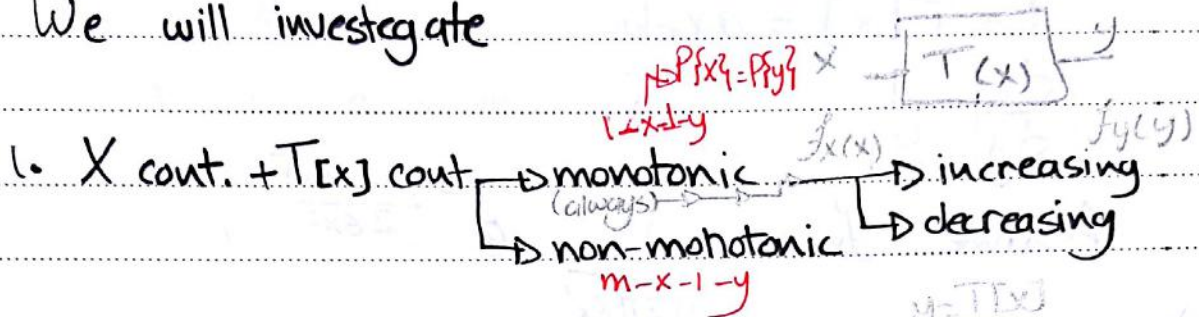 We will investegate
P{x} = P{y} X T(x) y
1-x-1-y fx(x) fy(y)
1. X cont. + T[x] cont → monotonic → increasing
(always) → decreasing
→ non-monotonic
m-x-1-y
y=T[x]